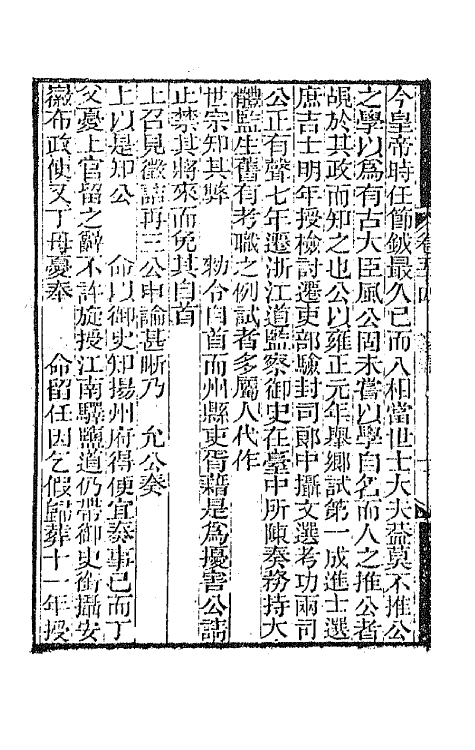 今皇帝時任節鉞最久已而入相當世士大夫益莫不推公
之學以為有古大臣風公固未嘗以學自名而人之推公者
覘於其政而知之也公以雍正元年舉鄉試第一成進士選
庶吉士明年授檢討遷吏部驗封司郎中攝文選考功兩司
公正有聲七年遷浙江道監察御史在臺中所陳奏務持大
體監生舊有考職之例試者多屬人代作
世宗知其弊　勅令自首而州縣吏胥藉是為擾害公請
止禁其將來而免其自首
上召見徵詰再三公申論甚晰乃　允公奏
上以是知公　命以御史知揚州府得便宜奏事已而丁
父憂上官留之辭不許旋授江南驛鹽道仍帶御史銜攝安
徽布政使又丁母憂奉　命留任因乞假歸葬十一年授
卷五四